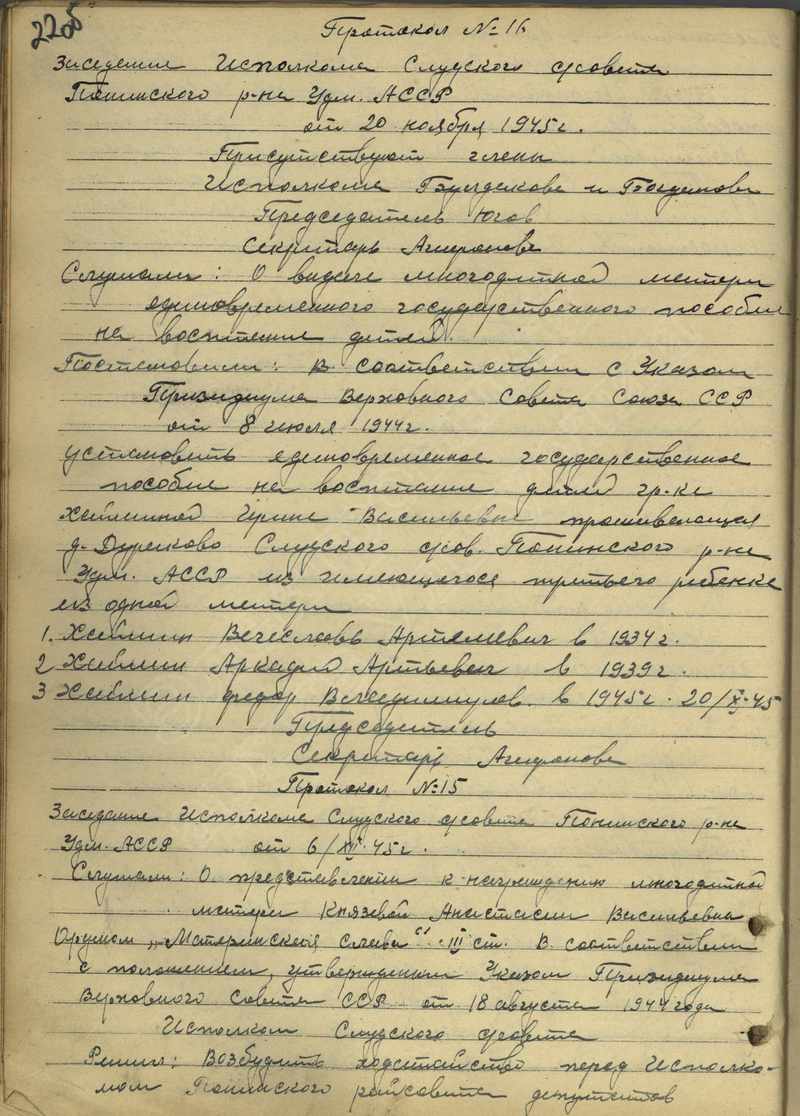 228
Протокол № 16
Заседание Исполкома Слудского с/совета
Понинского р-на Удм. АССР
от 20 ноября 1945 г.
Присутствуют члены
Исполкома Бузаскова и Богданова
Председатель Югов
Секретарь Агафонова
Слушали: О выдаче многодетной матери
единовременного государственного пособие
на воспитание детей.
Постановили: В соответствии с Указом
Призидиума Верховного Совета Союза ССР
от 8 июля 1944 г.
установить единовременное государственное
пособие на воспитание детей гр-ке
Ирине Васильевне проживающая
д. Слудского с/сов. Понинского р-на
Удм. АССР из имеющегося третьего ребенка
из одной матери
1. Вячеславъ Артемевич в 1934 г.
2 Аркадий Артьевич в 1939 г.
3 Федор в 1945 г. 20/X-45
Председатель
Секретарь Агафонова
Протокол № 15
Заседание Исполкома Слудского с/совета Понинского р-на
Удм. АССР от 6/XII 45 г.
Слушали: О представлении к награждению многодетной
матери Князевой Анастасии Васильевна
Орденом „Материнская слава" III ст. В соответствии
с положением, утвержденым Указом Призидиума
Верховного Совета ССР от 18 августа 1944 года
Исполком Слудского с/совета
Решил: Возбудить ходотайство перед Исполко-
мом Понинского райсовета депутатов